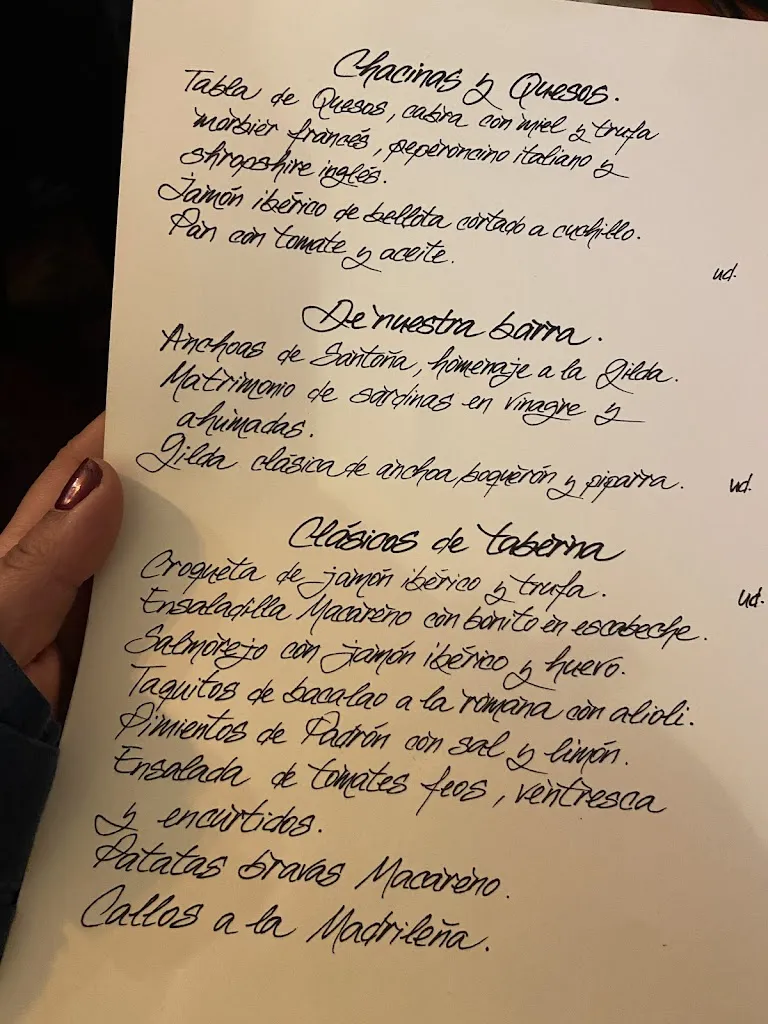 Chacinas y Quesos.
Tabla de Quesos, cabra con miel y trufa
morbier francés, peperoncino italiano y
shropshire inglés.
Jamón ibérico de bellota cortado a cuchillo.
Pan con tomate y aceite.
ud.
De nuestra barra.
Anchoas de Santoña, homenaje a la Gilda.
Matrimonio de sardinas en vinagre y
ahumadas.
Gilda clásica de anchoa, boquerón y piparra. ud.
Clásicos de taberna
Croqueta de jamón ibérico y trufa. ud.
Ensaladilla Macareno con bonito en escabeche.
Salmorejo con jamón ibérico y huevo.
Taquitos de bacalao a la romana con alioli.
Pimientos de Padrón con sal y limón.
Ensalada de tomates feos, ventresca
y encurtidos.
Patatas bravas Macareno.
Callos a la Madrileña.